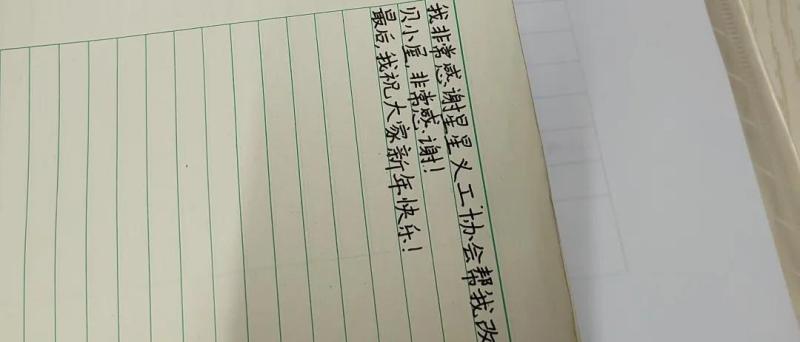 我非常感谢星星义工协会帮我改
贝小屋,非常感谢!
最后,我祝大家新年快乐!